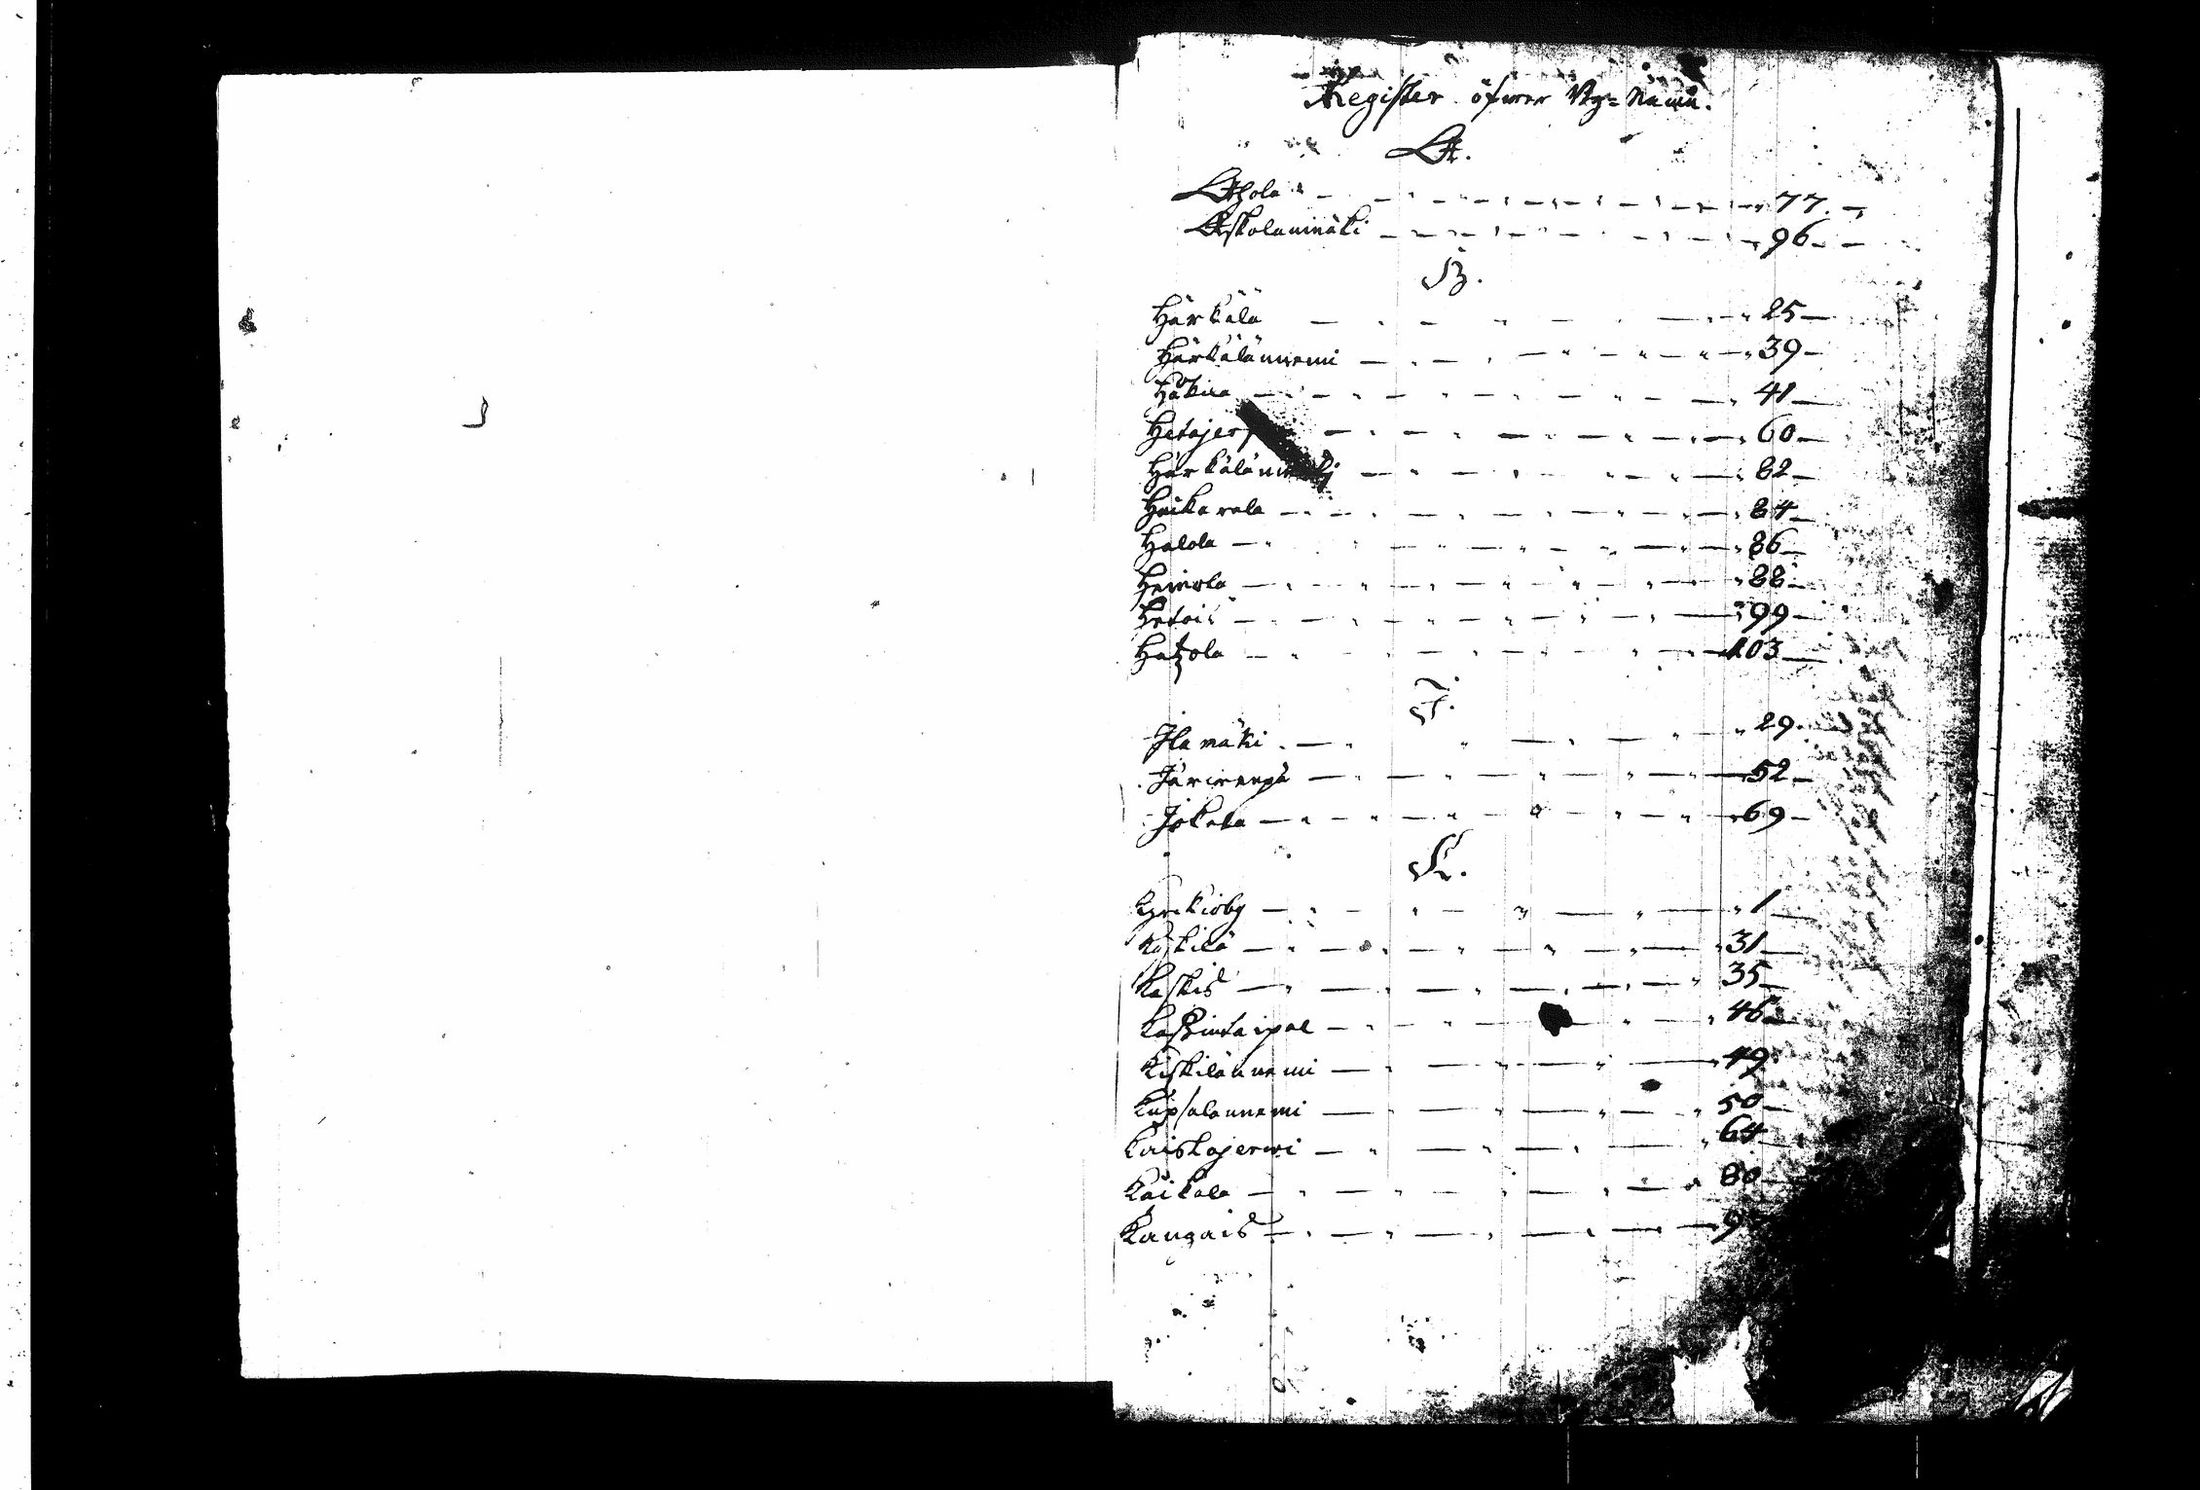 Register öfwer By=Namn.
A.
Ahola 77.
Askolanmäki 96
H.
Härkälä 25
Härkälänniemi 39
Håkna 41
Hetajer 60
Härkälän 82
Haikarala 84
Halola 86
Heimola 88
Hetois 99
Hatzola 103
J.
Jlamäki 29.
Järwenpä 52
Jokela 69
K.
Kyrkioby 1
Kiskilä 31
Kaskis 35
Kaskintaipal 46
Kiskilänniemi 49
Kapsalanniemi 50
Kaiskajerwi 64
Kaikala 80
Kangais